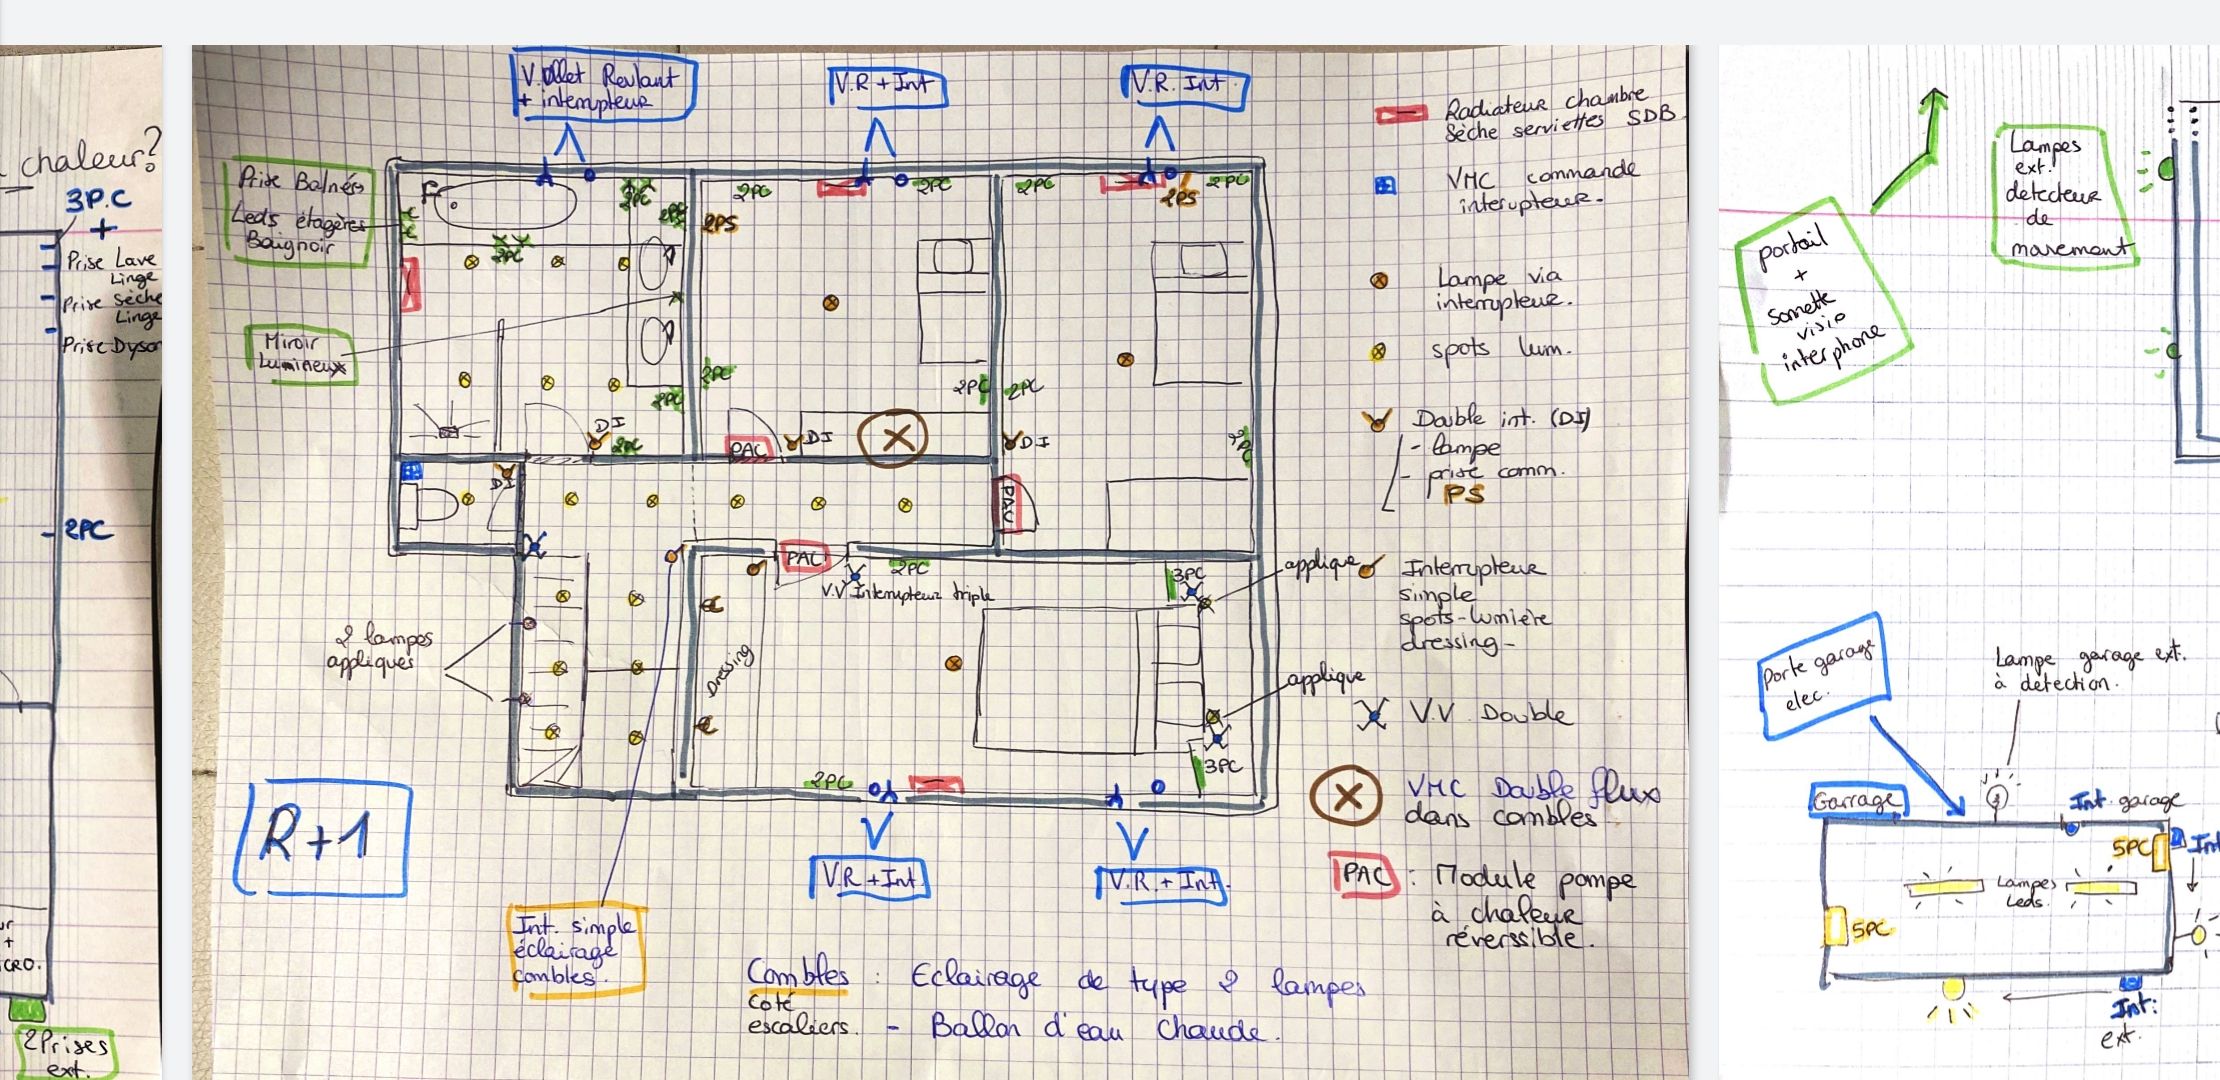 chaleur?
3P.C
+
Prise Lave
Linge
Prise sèche
Linge
Prise Dyson
2PC
+
CRO.
2Prises
ext.
V.ollet Roulant
+ interrupteur
V.R + Int
V.R. Int.
Prise Balnéo
Leds étagères
Baignoir
Miroir
Lumineux
2PC
2PC
2PS
2PC
2PC
2PC
2PC
2PS
2PC
2PC
2PC
2PC
2PC
2PC
2PC
DI
2PC
PAC
DI
DI
DI
PAC
PAC
2PC
V.V Interrupteur triple
3PC
applique
2 lampes
appliques
Dressing
applique
2PC
3PC
V.R + Int
V.R. + Int.
R+1
Int. simple
éclairage
combles.
Combles : Eclairage de type 2 lampes
coté
escaliers. - Ballon d'eau chaude.
Radiateur chambre
Sèche serviettes SDB
VMC commande
interupteur.
Lampe via
interrupteur.
spots lum.
Double int. (DI)
- lampe
- prise comm.
PS
Interrupteur
simple
spots-lumière
dressing-
V.V. Double
VMC Double flux
dans combles
PAC : Module pompe
à chaleur
réverssible.
portail
+
sonnette
visio
interphone
Lampes
ext.
detecteur
de
mouvement
Porte garage
elec.
Lampe garage ext.
à détection.
Garrage
Int. garage
5PC
Int
Lampes
Leds.
5PC
Int:
ext.